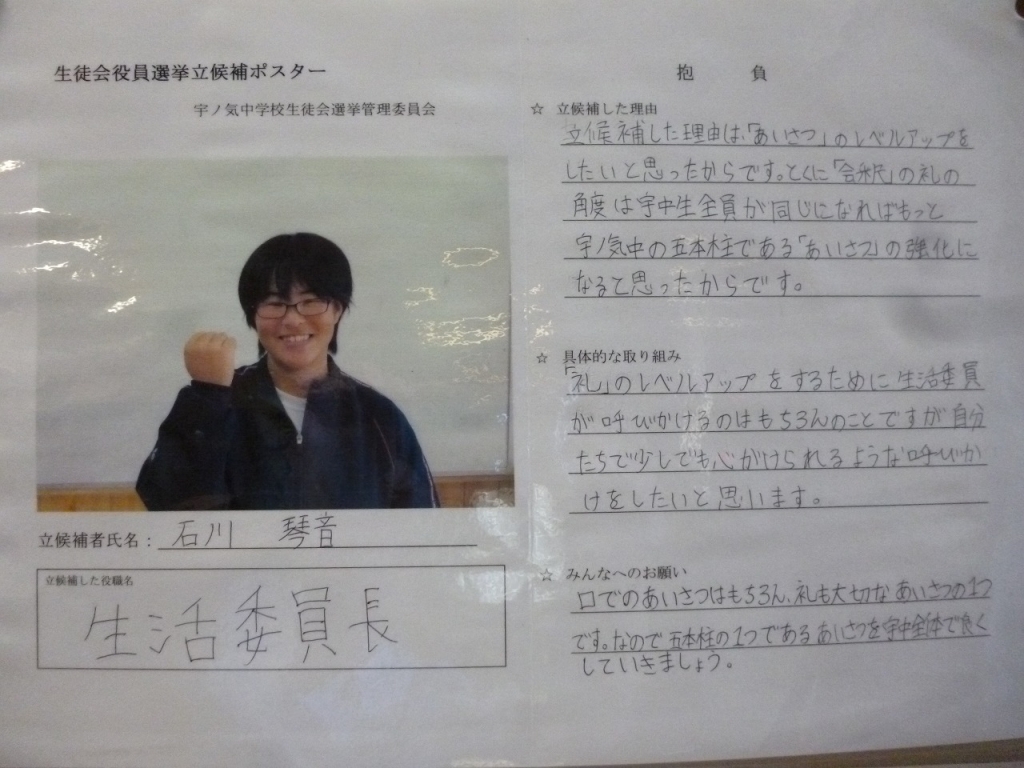 生徒会役員選挙立候補ポスター
宇ノ気中学校生徒会選挙管理委員会
立候補者氏名：石川 琴音
立候補した役職名
生活委員長
抱 負
☆ 立候補した理由
立候補した理由は、「あいさつ」のレベルアップを
したいと思ったからです。とくに「会釈」の礼の
角度は宇中生全員が同じになればもっと
宇ノ気中の五本柱である「あいさつ」の強化に
なると思ったからです。
☆ 具体的な取り組み
「礼」のレベルアップをするために生活委員
が呼びかけるのはもちろんのことですが自分
たちで少しでも心がけられるような呼びか
けをしたいと思います。
☆ みんなへのお願い
口でのあいさつはもちろん、礼も大切なあいさつの1つ
です。なので五本柱の1つであるあいさつを宇中全体で良く
していきましょう。